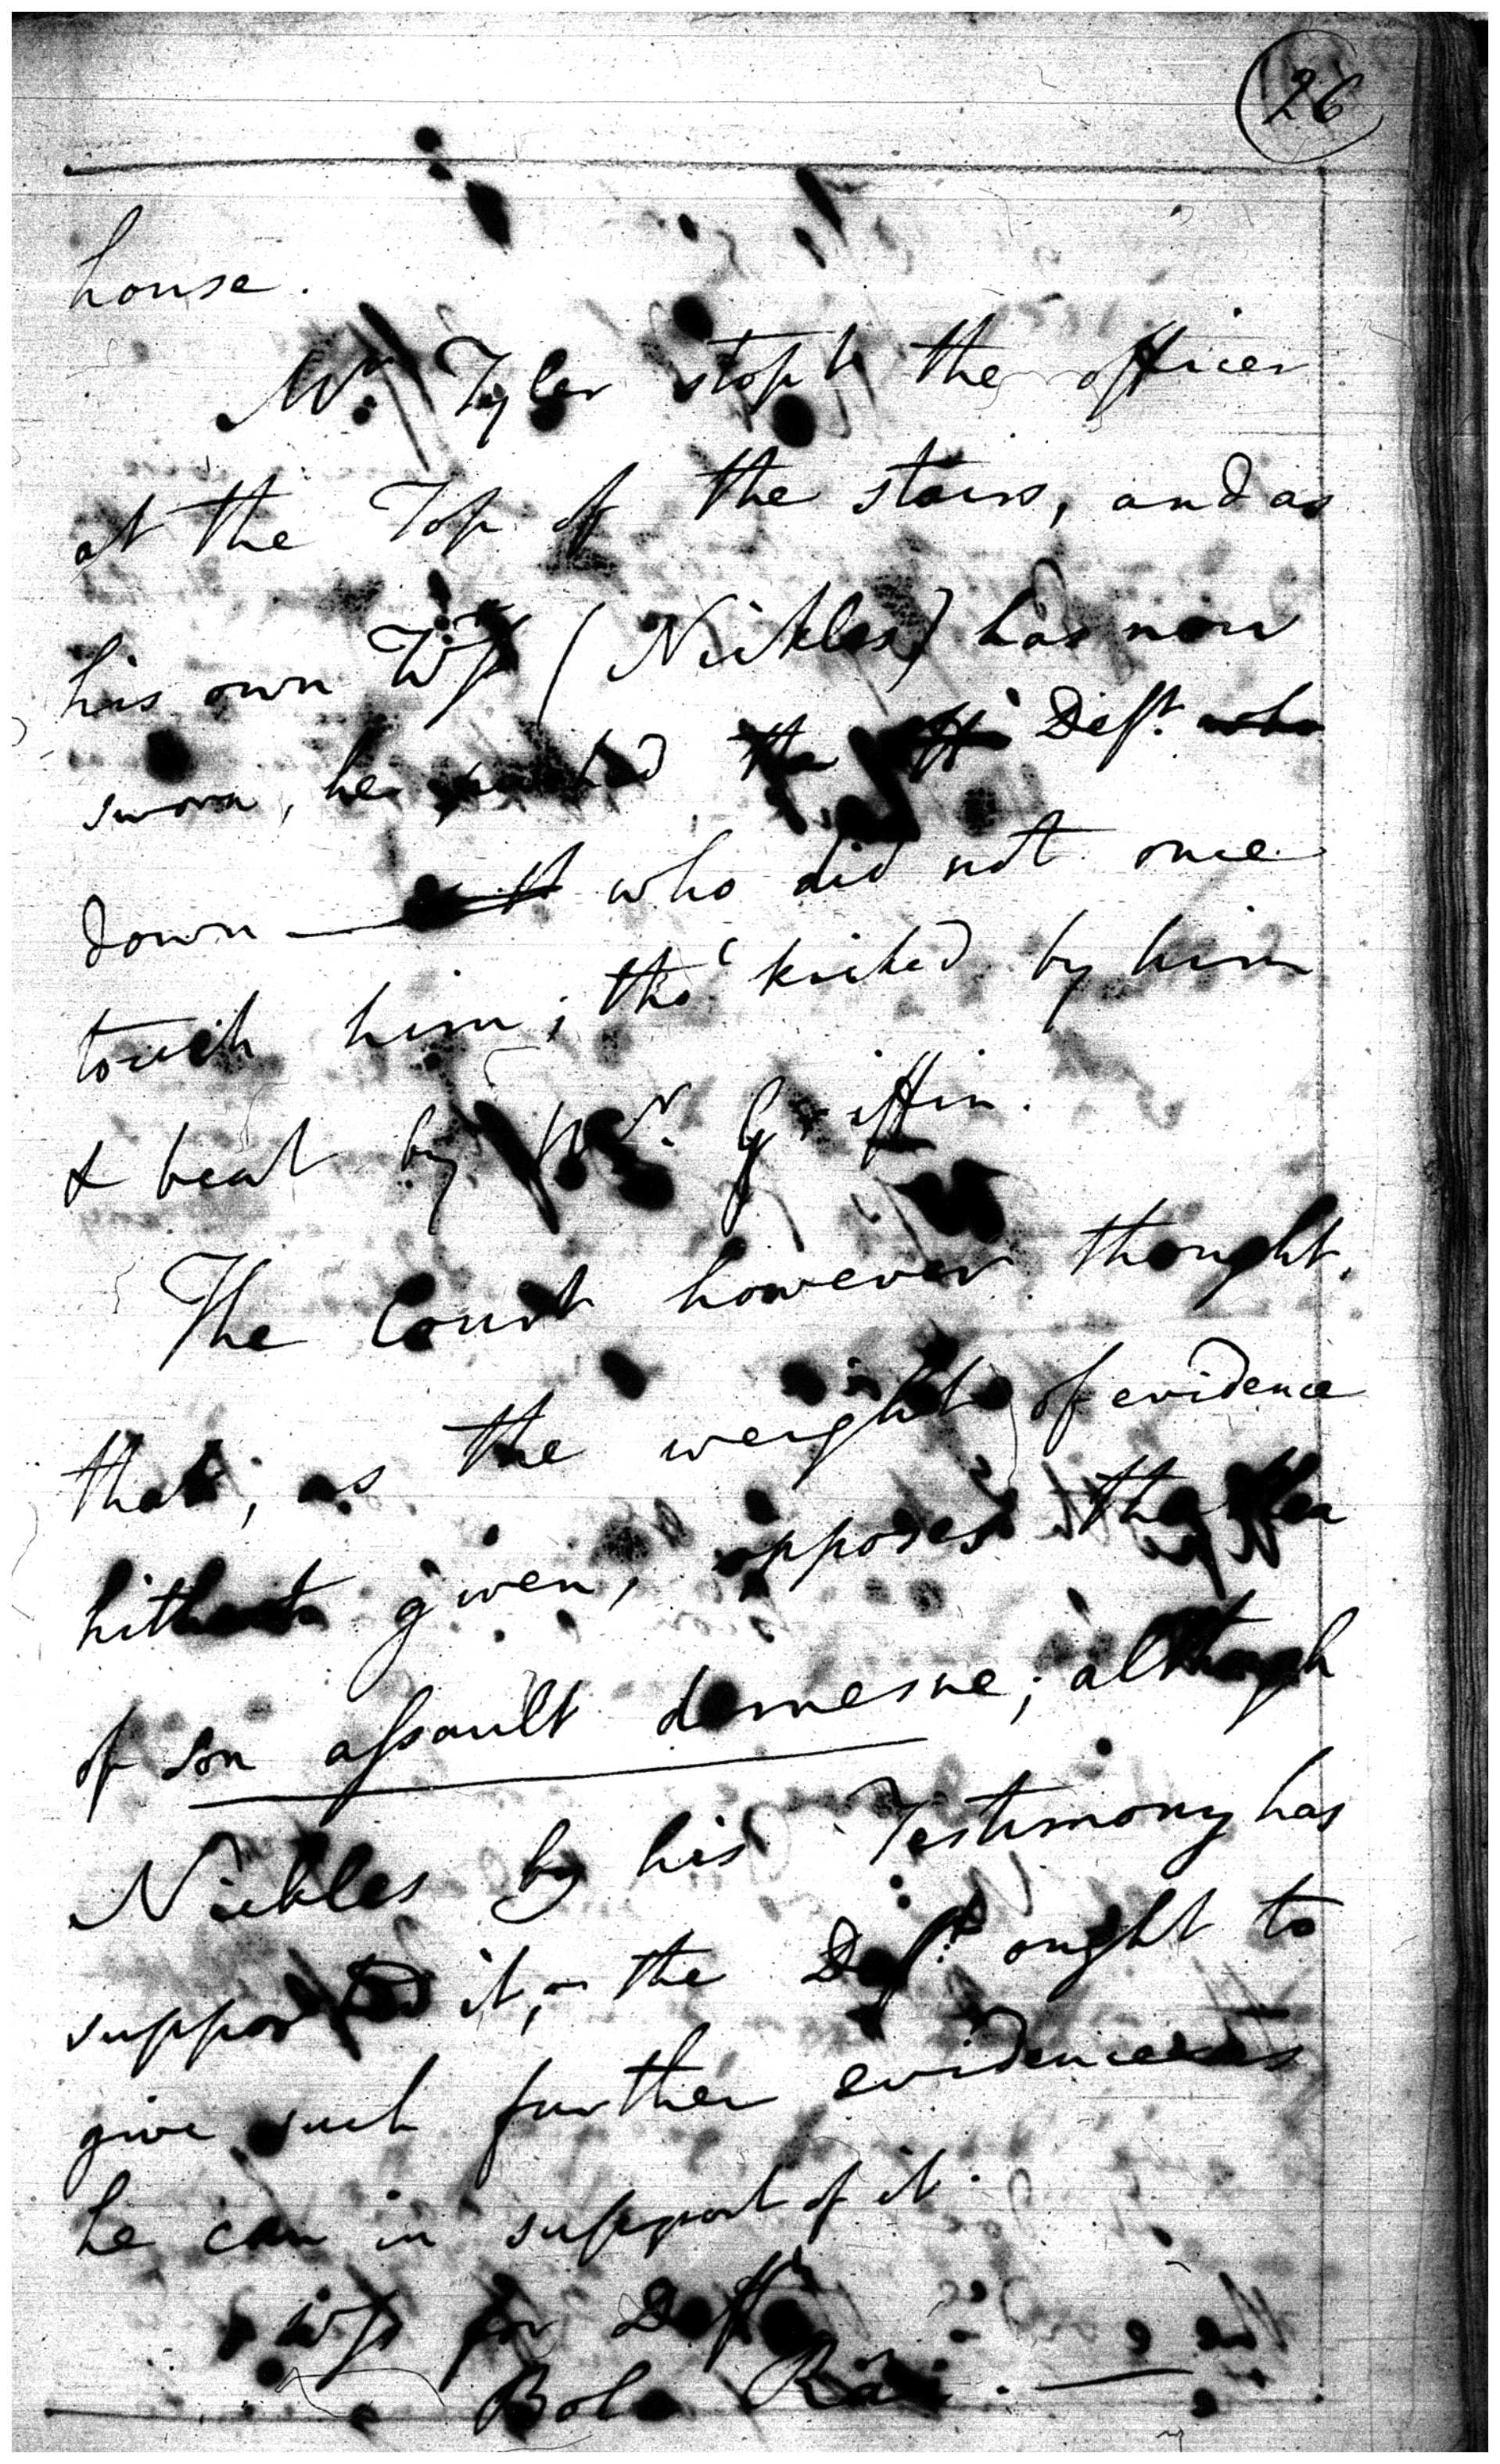 26
house.
Mr. Tyler stopt the officer
at the Top of the stairs, and as
his own Wss (Nickles) has now
sworn, he pushed the Deft. who
down who did not once
touch him; tho' kicked by him
& beat by Mr. Griffin.
The Court however thought,
that, as the weight of evidence
hitherto given, opposes the plea
of son assault demesne; although
Nickles by his Testimony has
supported it, - the Deft. ought to
give such further evidence as
he can in support of it.
Wss for Deft.
Bola Rai. —